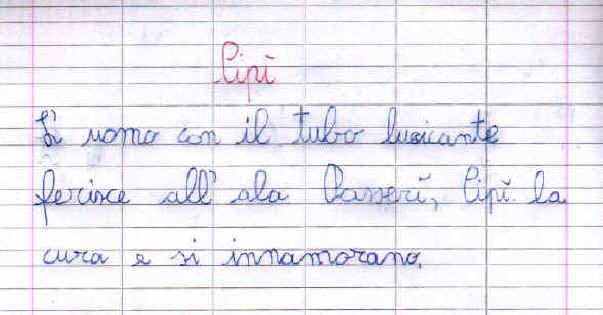 Cipì
L'uomo con il tubo lusicante
ferisce all'ala Passerì, Cipì la
cura e si innamorano.